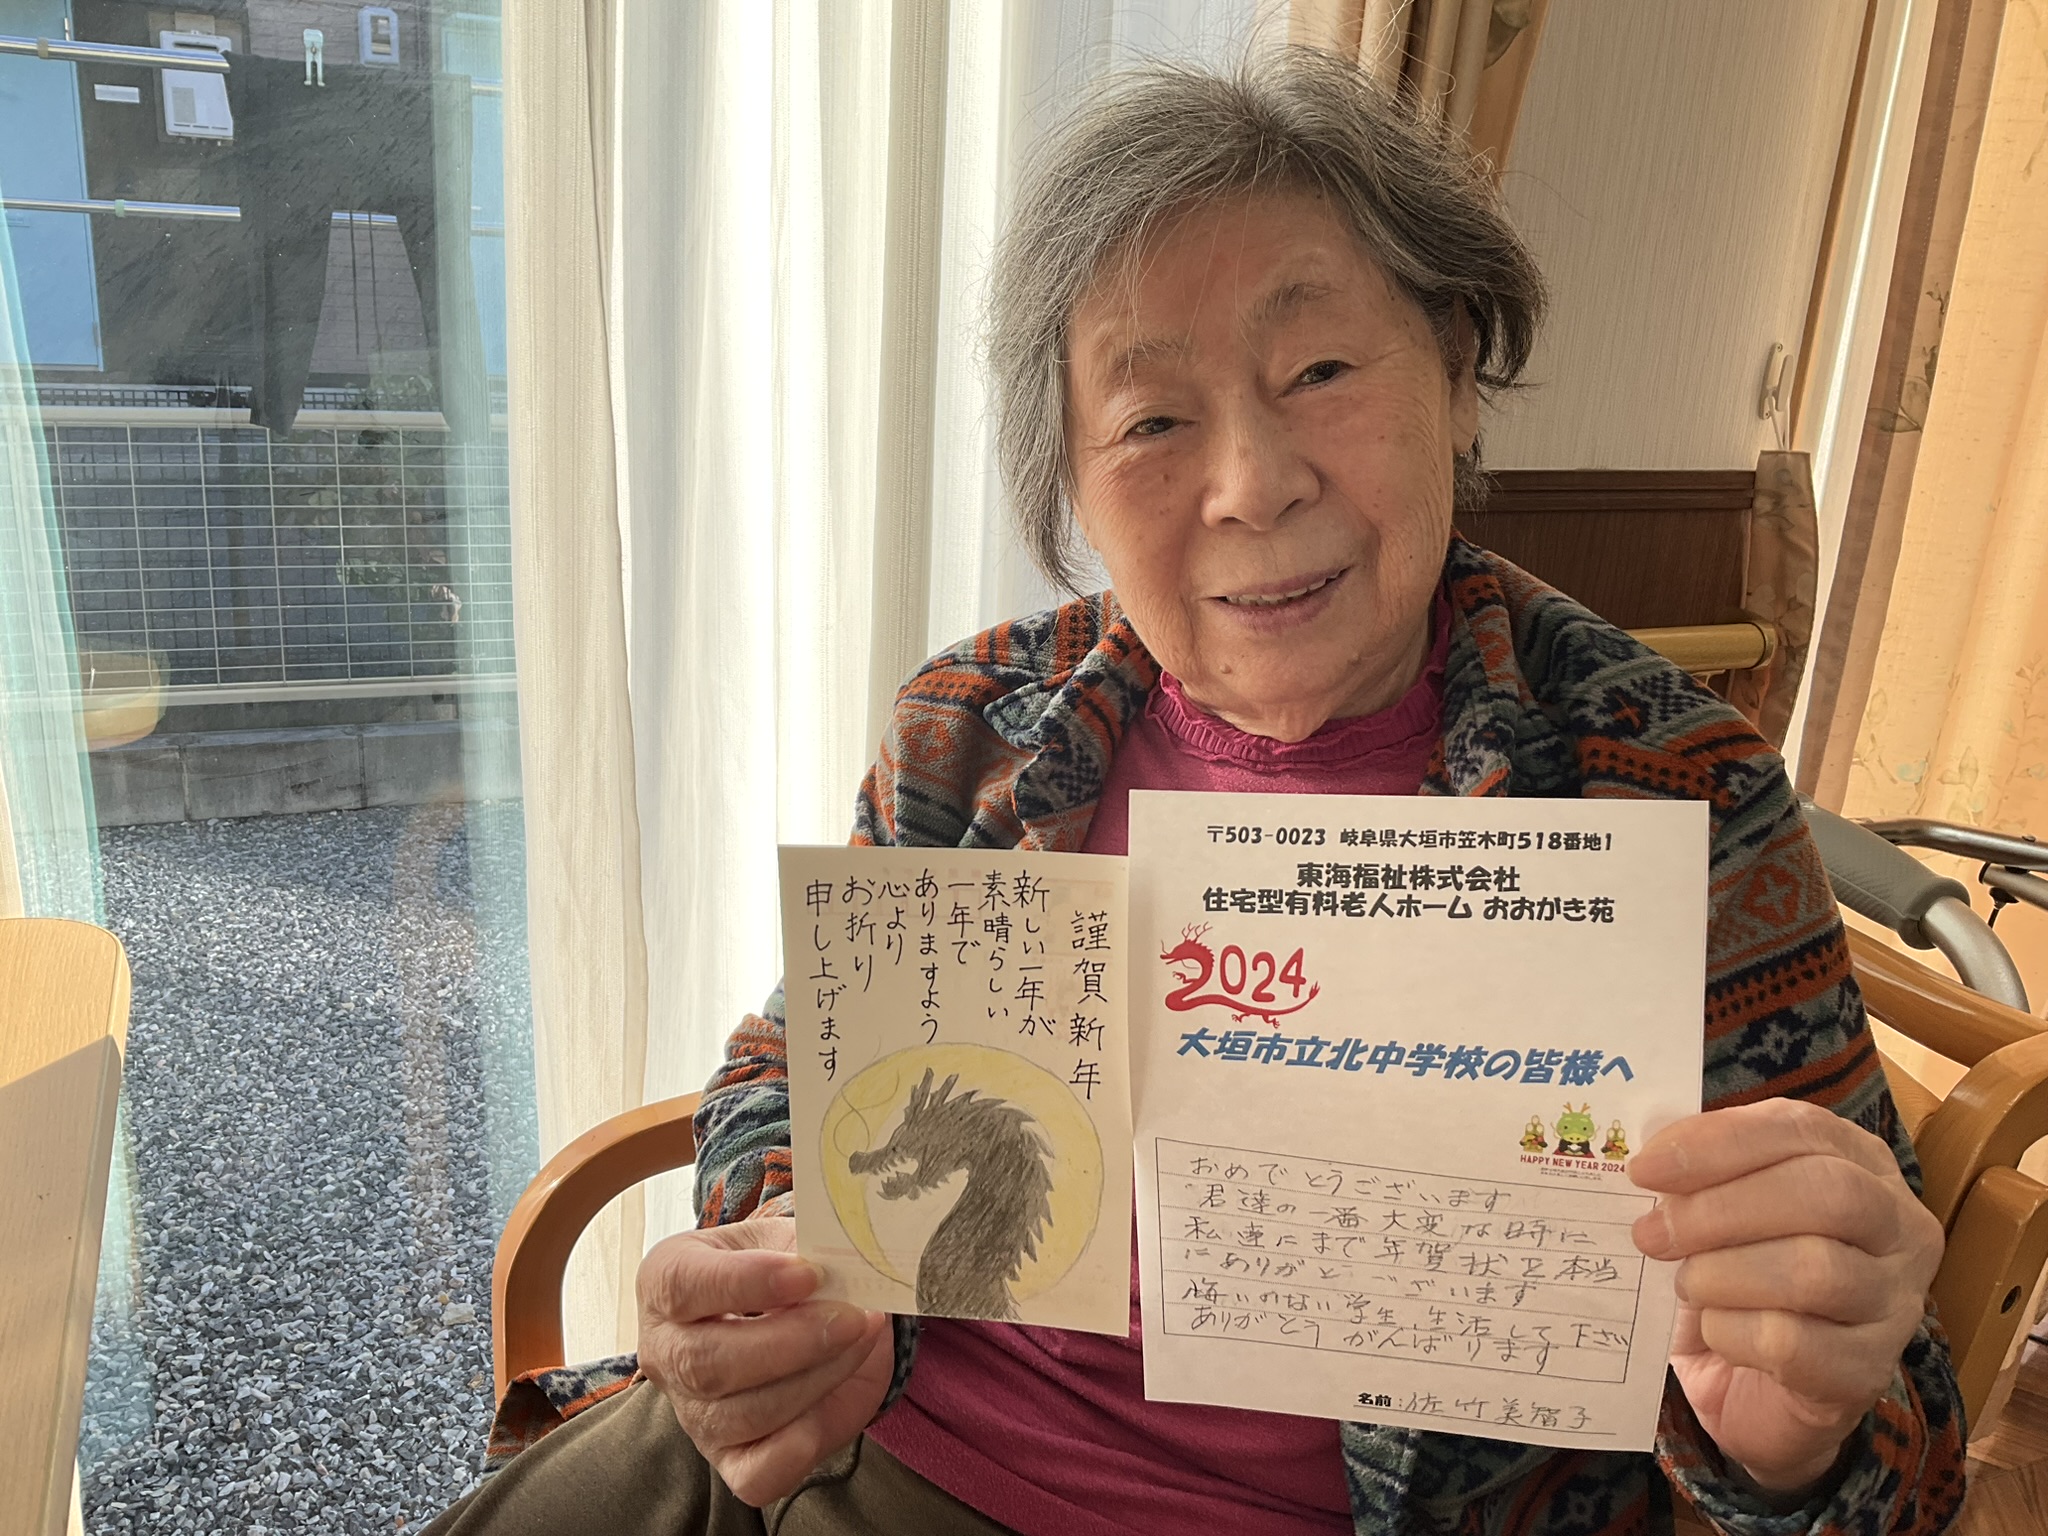 謹賀新年
新しい一年が
素晴らしい
一年で
ありますよう
心より
お祈り
申し上げます
〒503-0023 岐阜県大垣市笠木町518番地1
東海福祉株式会社
住宅型有料老人ホーム おおがき苑
2024
大垣市立北中学校の皆様へ
HAPPY NEW YEAR 2024
おめでとうございます
君達の一番大変な時に
私達にまで年賀状を本当
にありがとうございます
悔いのない学生生活して下さい
ありがとうがんばります
名前:佐竹美智子